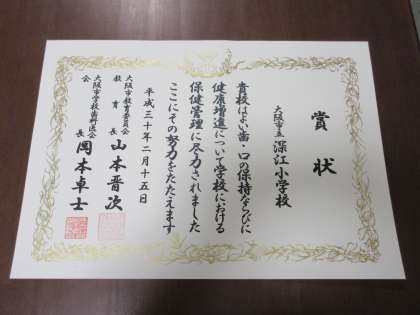 賞状
大阪市立 深江小学校
貴校はよい歯・口の保持ならびに
健康増進について学校における
保健管理に尽力されました
ここにその努力をたたえます
平成三十年二月十五日
大阪市教育委員会
教育長 山本晋次
大阪市学校歯科医会
会長 岡本卓士